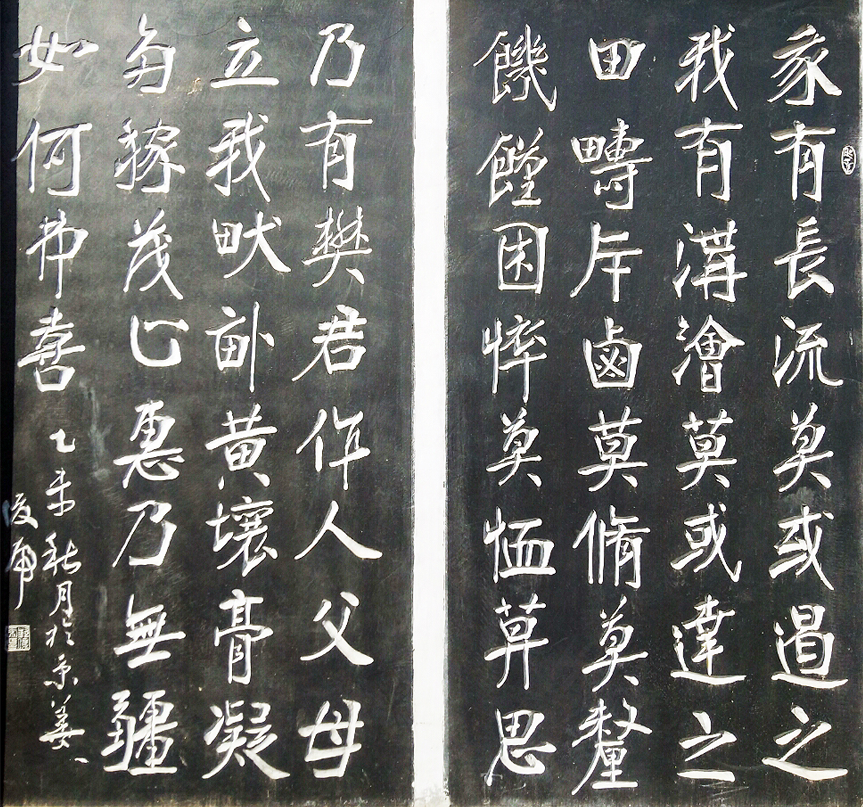 家有長流莫或遏之
我有溝澮莫或達之
田疇斥鹵莫脩莫釐
饑饉困悴莫恤莫思
乃有樊君作人父母
立我畎畝黃壤膏凝
多稼茂止惠乃無疆
如何弗喜
乙未秋月於京